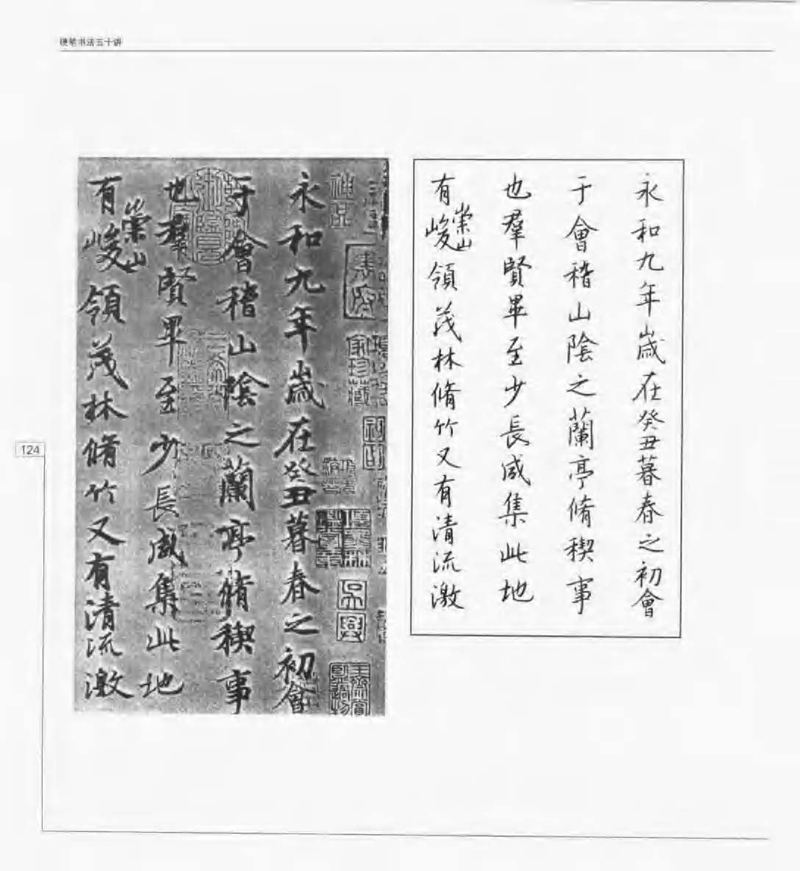 硬笔书法五十讲
永和九年歲在癸丑暮春之初會
于會稽山陰之蘭亭脩稧事
也羣賢畢至少長咸集此地
有崇山峻領茂林脩竹又有清流激
永和九年歲在癸丑暮春之初會
于會稽山陰之蘭亭脩稧事
也羣賢畢至少長咸集此地
有崇山峻領茂林脩竹又有清流激
124